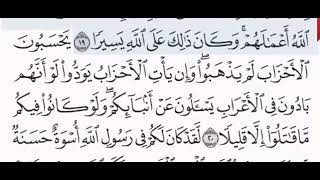 ٱللَّهُ أَعْمَٰلَهُمْ ۚ وَكَانَ ذَٰلِكَ عَلَى ٱللَّهِ يَسِيرًا ۝١٩ يَحْسَبُونَ
ٱلْأَحْزَابَ لَمْ يَذْهَبُوا۟ ۖ وَإِن يَأْتِ ٱلْأَحْزَابُ يَوَدُّوا۟ لَوْ أَنَّهُم
بَادُونَ فِى ٱلْأَعْرَابِ يَسْـَٔلُونَ عَنْ أَنۢبَآئِكُمْ ۖ وَلَوْ كَانُوا۟ فِيكُم
مَّا قَٰتَلُوٓا۟ إِلَّا قَلِيلًا ۝٢٠ لَّقَدْ كَانَ لَكُمْ فِى رَسُولِ ٱللَّهِ أُسْوَةٌ حَسَنَةٌ